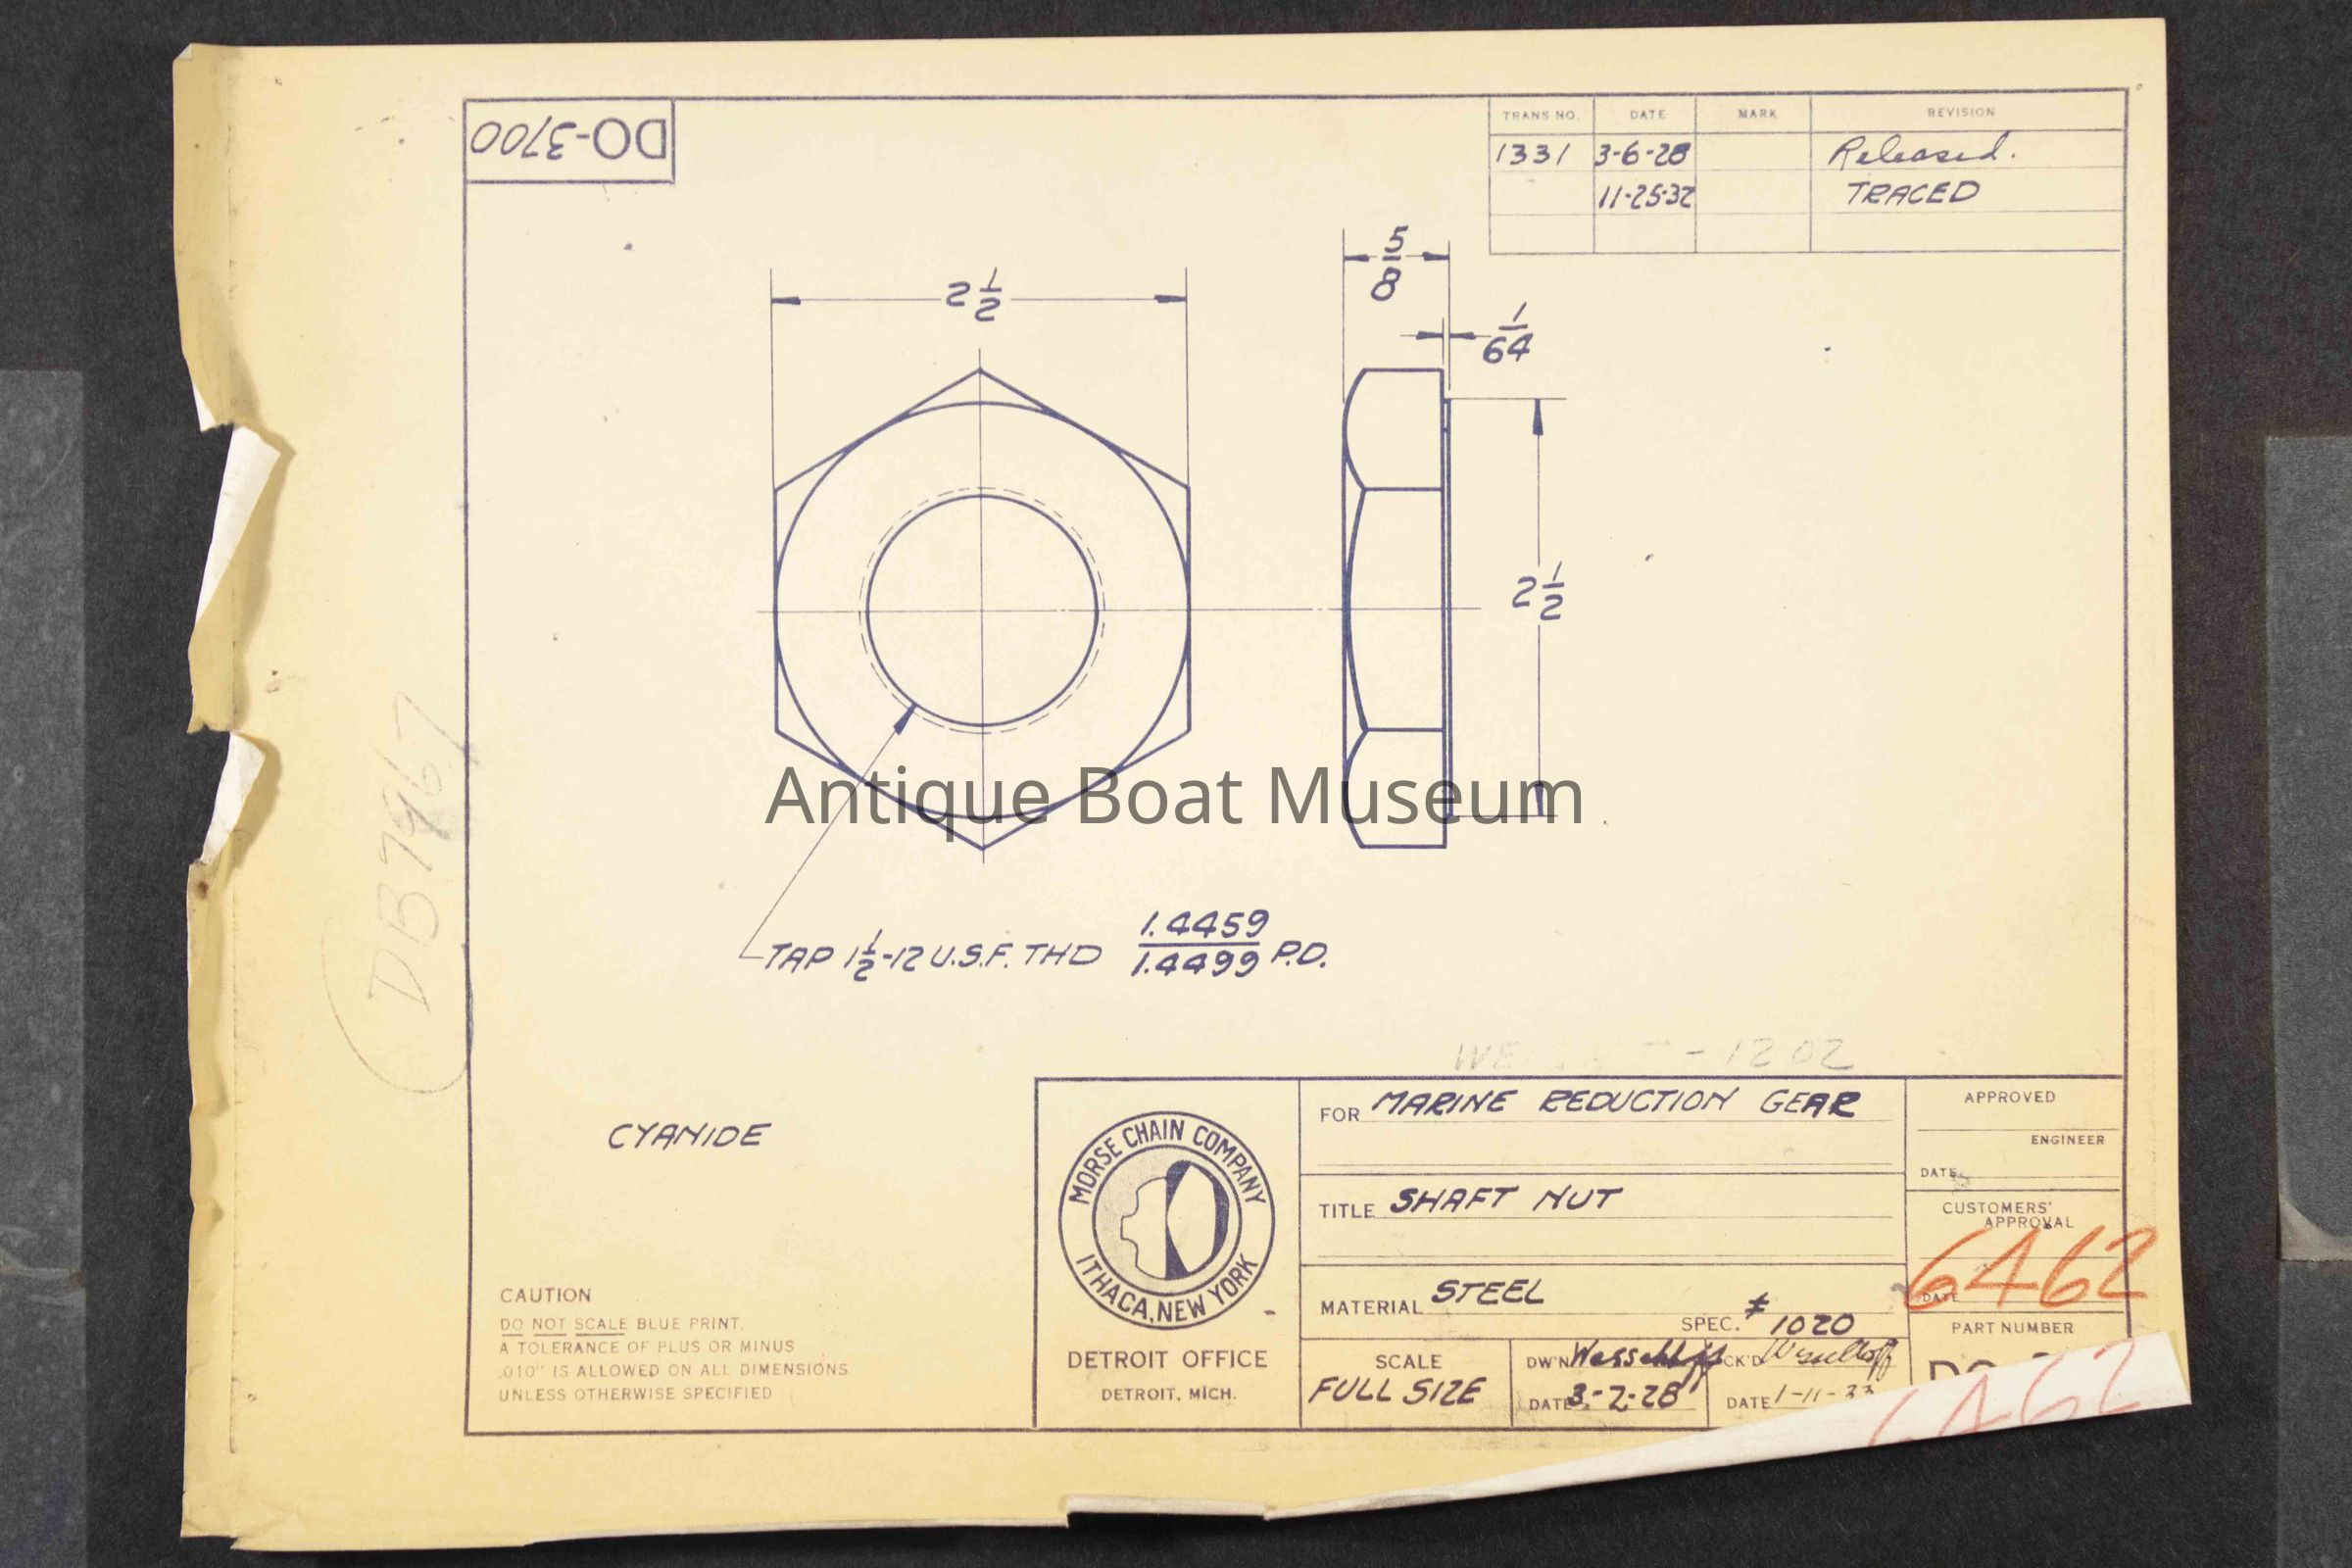 DO-3700
TRANS NO. DATE MARK REVISION
1331 3-6-28 Released.
11-25-32 TRACED
2 1/2
5/8
1/64
2 1/2
DB7967
Antique Boat Museum
TAP 1 1/2-12 U.S.F. THD 1.4459/1.4499 P.D.
-1202
CYANIDE
CAUTION
DO NOT SCALE BLUE PRINT.
A TOLERANCE OF PLUS OR MINUS
.010" IS ALLOWED ON ALL DIMENSIONS
UNLESS OTHERWISE SPECIFIED
MORSE CHAIN COMPANY
ITHACA, NEW YORK
DETROIT OFFICE
DETROIT, MICH.
FOR MARINE REDUCTION GEAR
TITLE SHAFT NUT
MATERIAL STEEL
SPEC. # 1020
SCALE
FULL SIZE
DW'N Wesselhoff
DATE 3-2-28
CK'D Wesselhoff
DATE 1-11-33
APPROVED
ENGINEER
DATE
CUSTOMERS'
APPROVAL
6462
DATE
PART NUMBER
6462